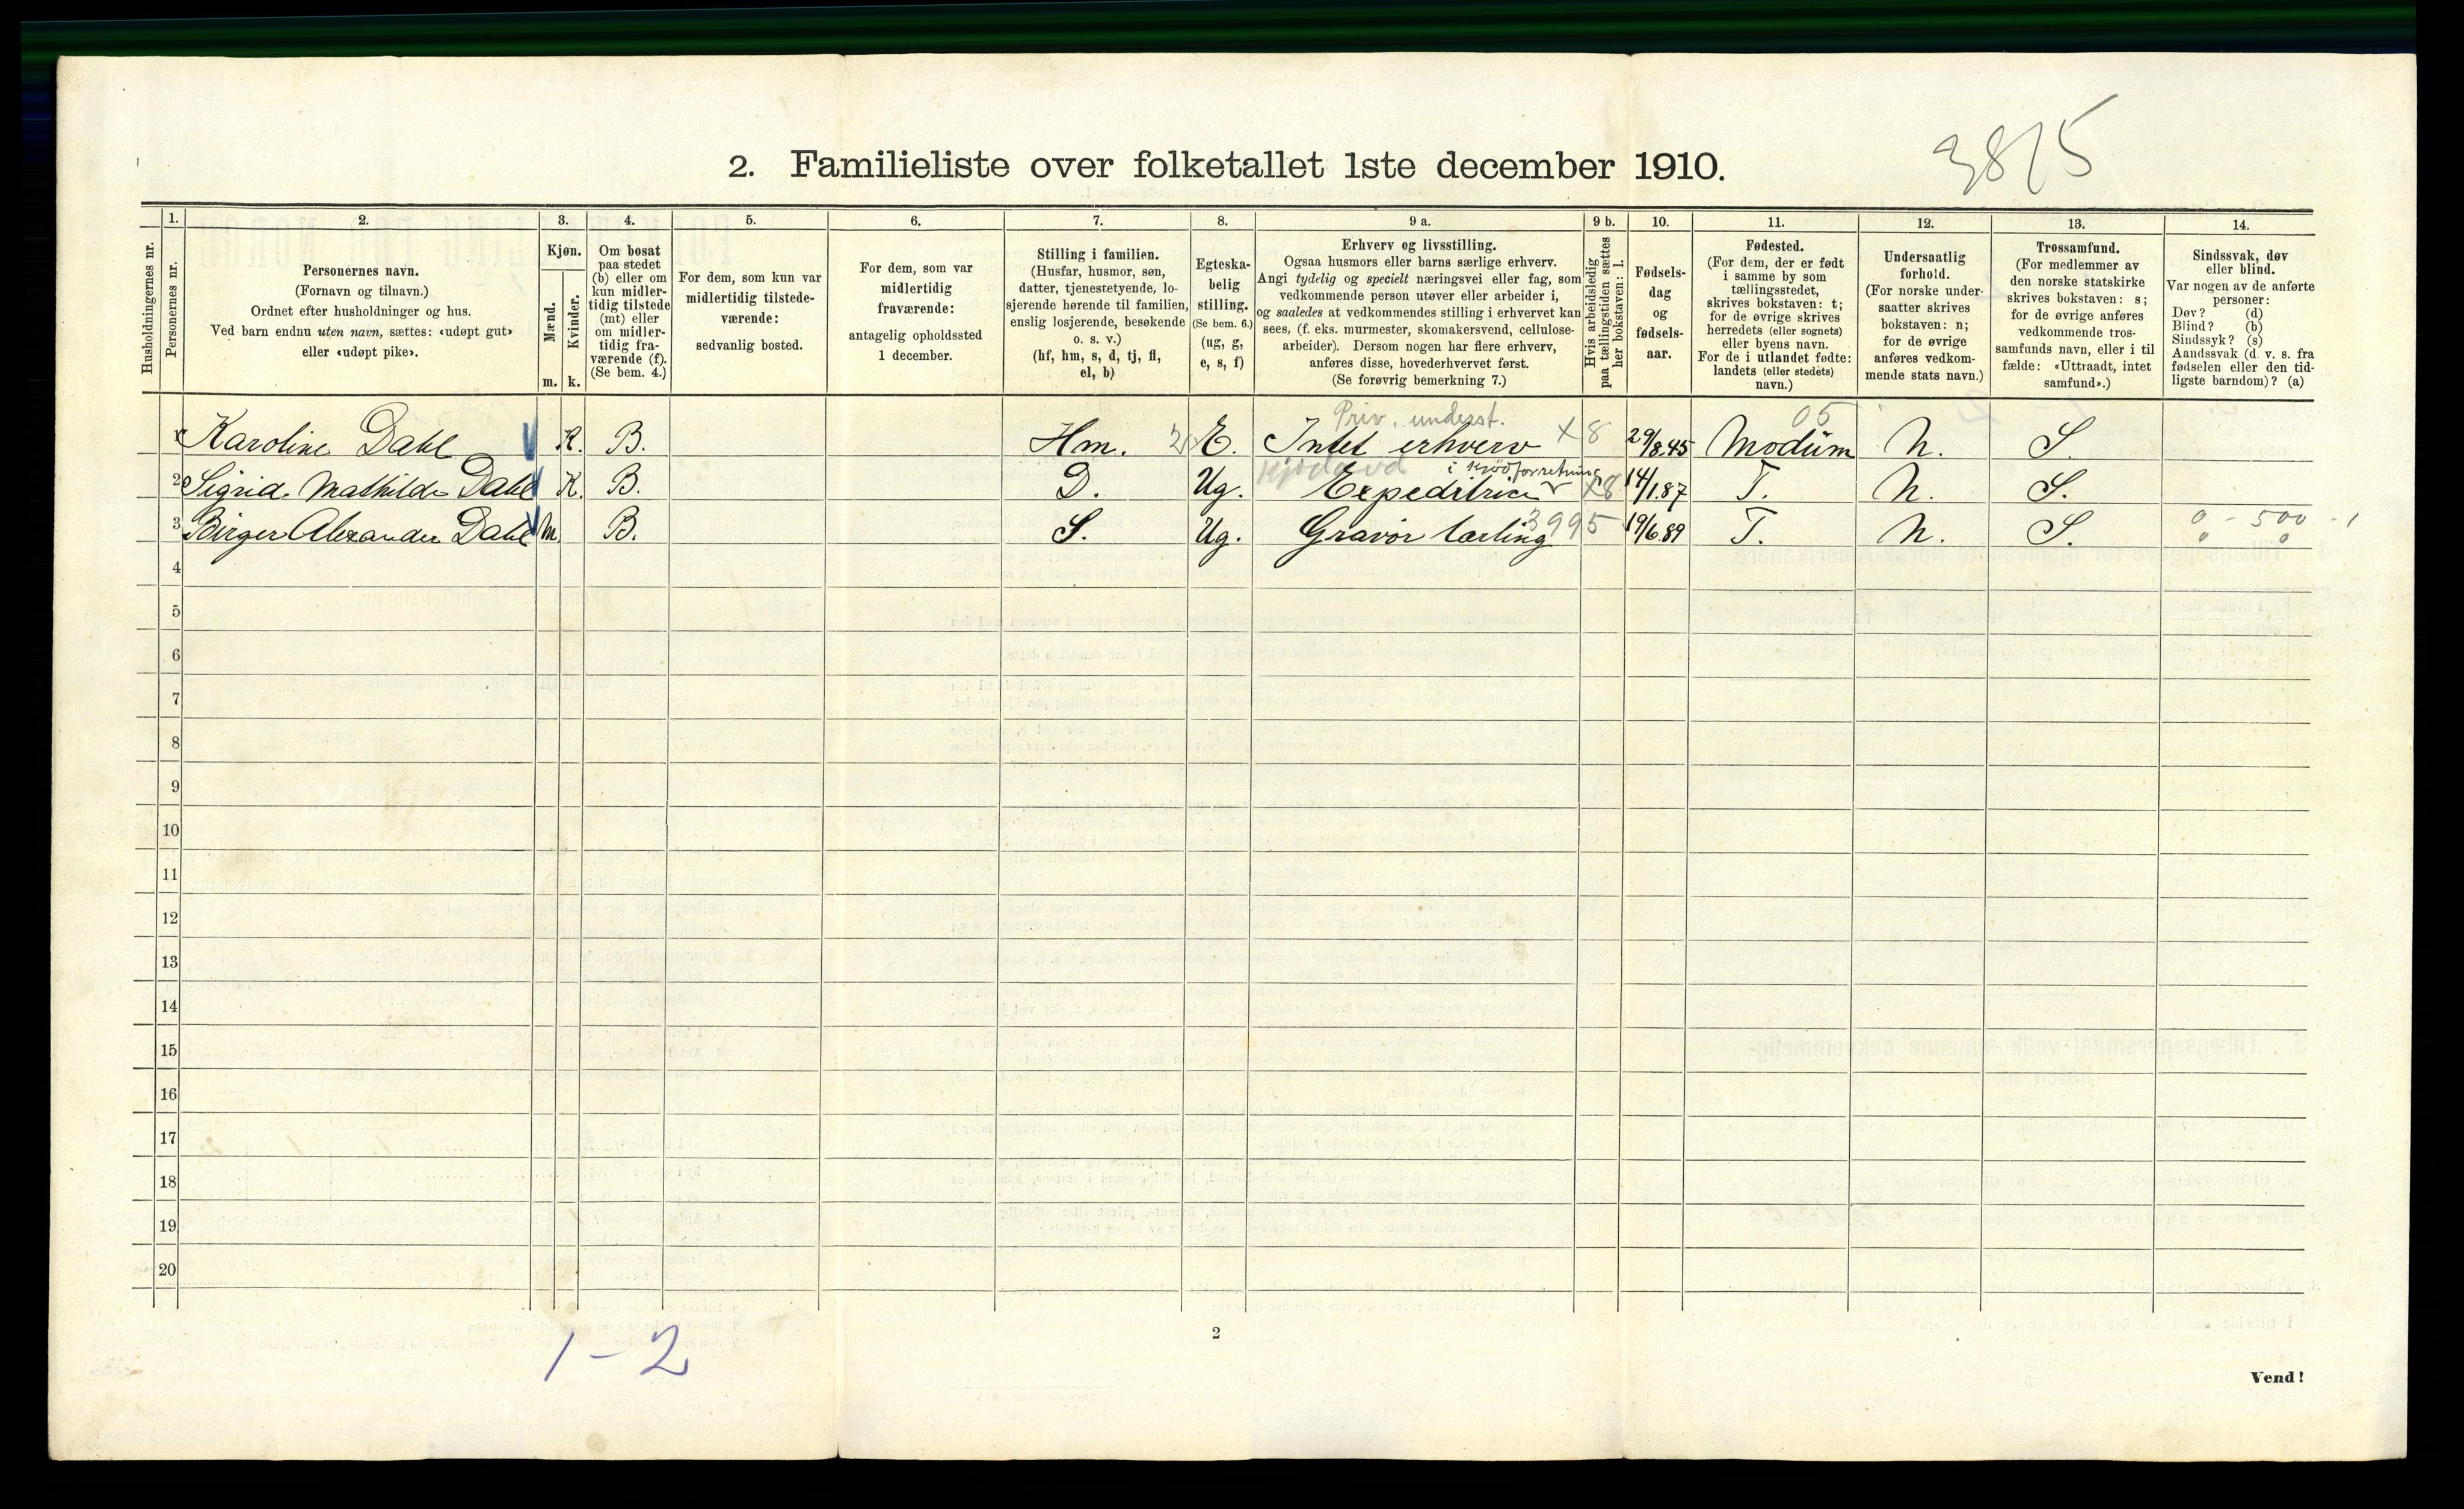 3875
2. Familieliste over folketallet 1ste december 1910.
Husholdningernes nr.
1. Personernes nr.
2. Personernes navn. (Fornavn og tilnavn.) Ordnet efter husholdninger og hus. Ved barn endnu uten navn, sættes: «udøpt gut» eller «udøpt pike».
3. Kjøn. Mænd. m. Kvinder. k.
4. Om bosat paa stedet (b) eller om kun midler-tidig tilstede (mt) eller om midler-tidig fra-værende (f). (Se bem. 4.)
5. For dem, som kun var midlertidig tilstede-værende: sedvanlig bosted.
6. For dem, som var midlertidig fraværende: antagelig opholdssted 1 december.
7. Stilling i familien. (Husfar, husmor, søn, datter, tjenestetyende, lo-sjerende hørende til familien, enslig losjerende, besøkende o. s. v.) (hf, hm, s, d, tj, fl, el, b)
8. Egteska-belig stilling. (Se bem. 6.) (ug, g, e, s, f)
9 a. Erhverv og livsstilling. Ogsaa husmors eller barns særlige erhverv. Angi tydelig og specielt næringsvei eller fag, som vedkommende person utøver eller arbeider i, og saaledes at vedkommendes stilling i erhvervet kan sees, (f. eks. murmester, skomakersvend, cellulose-arbeider). Dersom nogen har flere erhverv, anføres disse, hovederhvervet først. (Se forøvrig bemerkning 7.)
9 b. Hvis arbeidsledig paa tællingstiden sættes her bokstaven: l.
10. Fødsels-dag og fødsels-aar.
11. Fødested. (For dem, der er født i samme by som tællingsstedet, skrives bokstaven: t; for de øvrige skrives herredets (eller sognets) eller byens navn. For de i utlandet fødte: landets (eller stedets) navn.)
12. Undersaatlig forhold. (For norske under-saatter skrives bokstaven: n; for de øvrige anføres vedkom-mende stats navn.)
13. Trossamfund. (For medlemmer av den norske statskirke skrives bokstaven: s; for de øvrige anføres vedkommende tros-samfunds navn, eller i til fælde: «Uttraadt, intet samfund».)
14. Sindssvak, døv eller blind. Var nogen av de anførte personer: Døv? (d) Blind? (b) Sindssyk? (s) Aandssvak (d. v. s. fra fødselen eller den tid-ligste barndom)? (a)
Priv. underst. 05
1 Karoline Dahl K. B. Hm. E. Intet erhverv X8 29/8.45 Modum N. S.
i kjødforretning
2 Sigrid Mathilde Dahl K. B. D. Ug. Expeditrice X8 14/1.87 T. N. S.
3 Birger Alexander Dahl M. B. S. Ug. Gravör lærling 3995 19/6.89 T. N. S. 0 - 500 - 1
0 0
4
5
6
7
8
9
10
11
12
13
14
15
16
17
18
19
20
1 - 2
2
Vend!